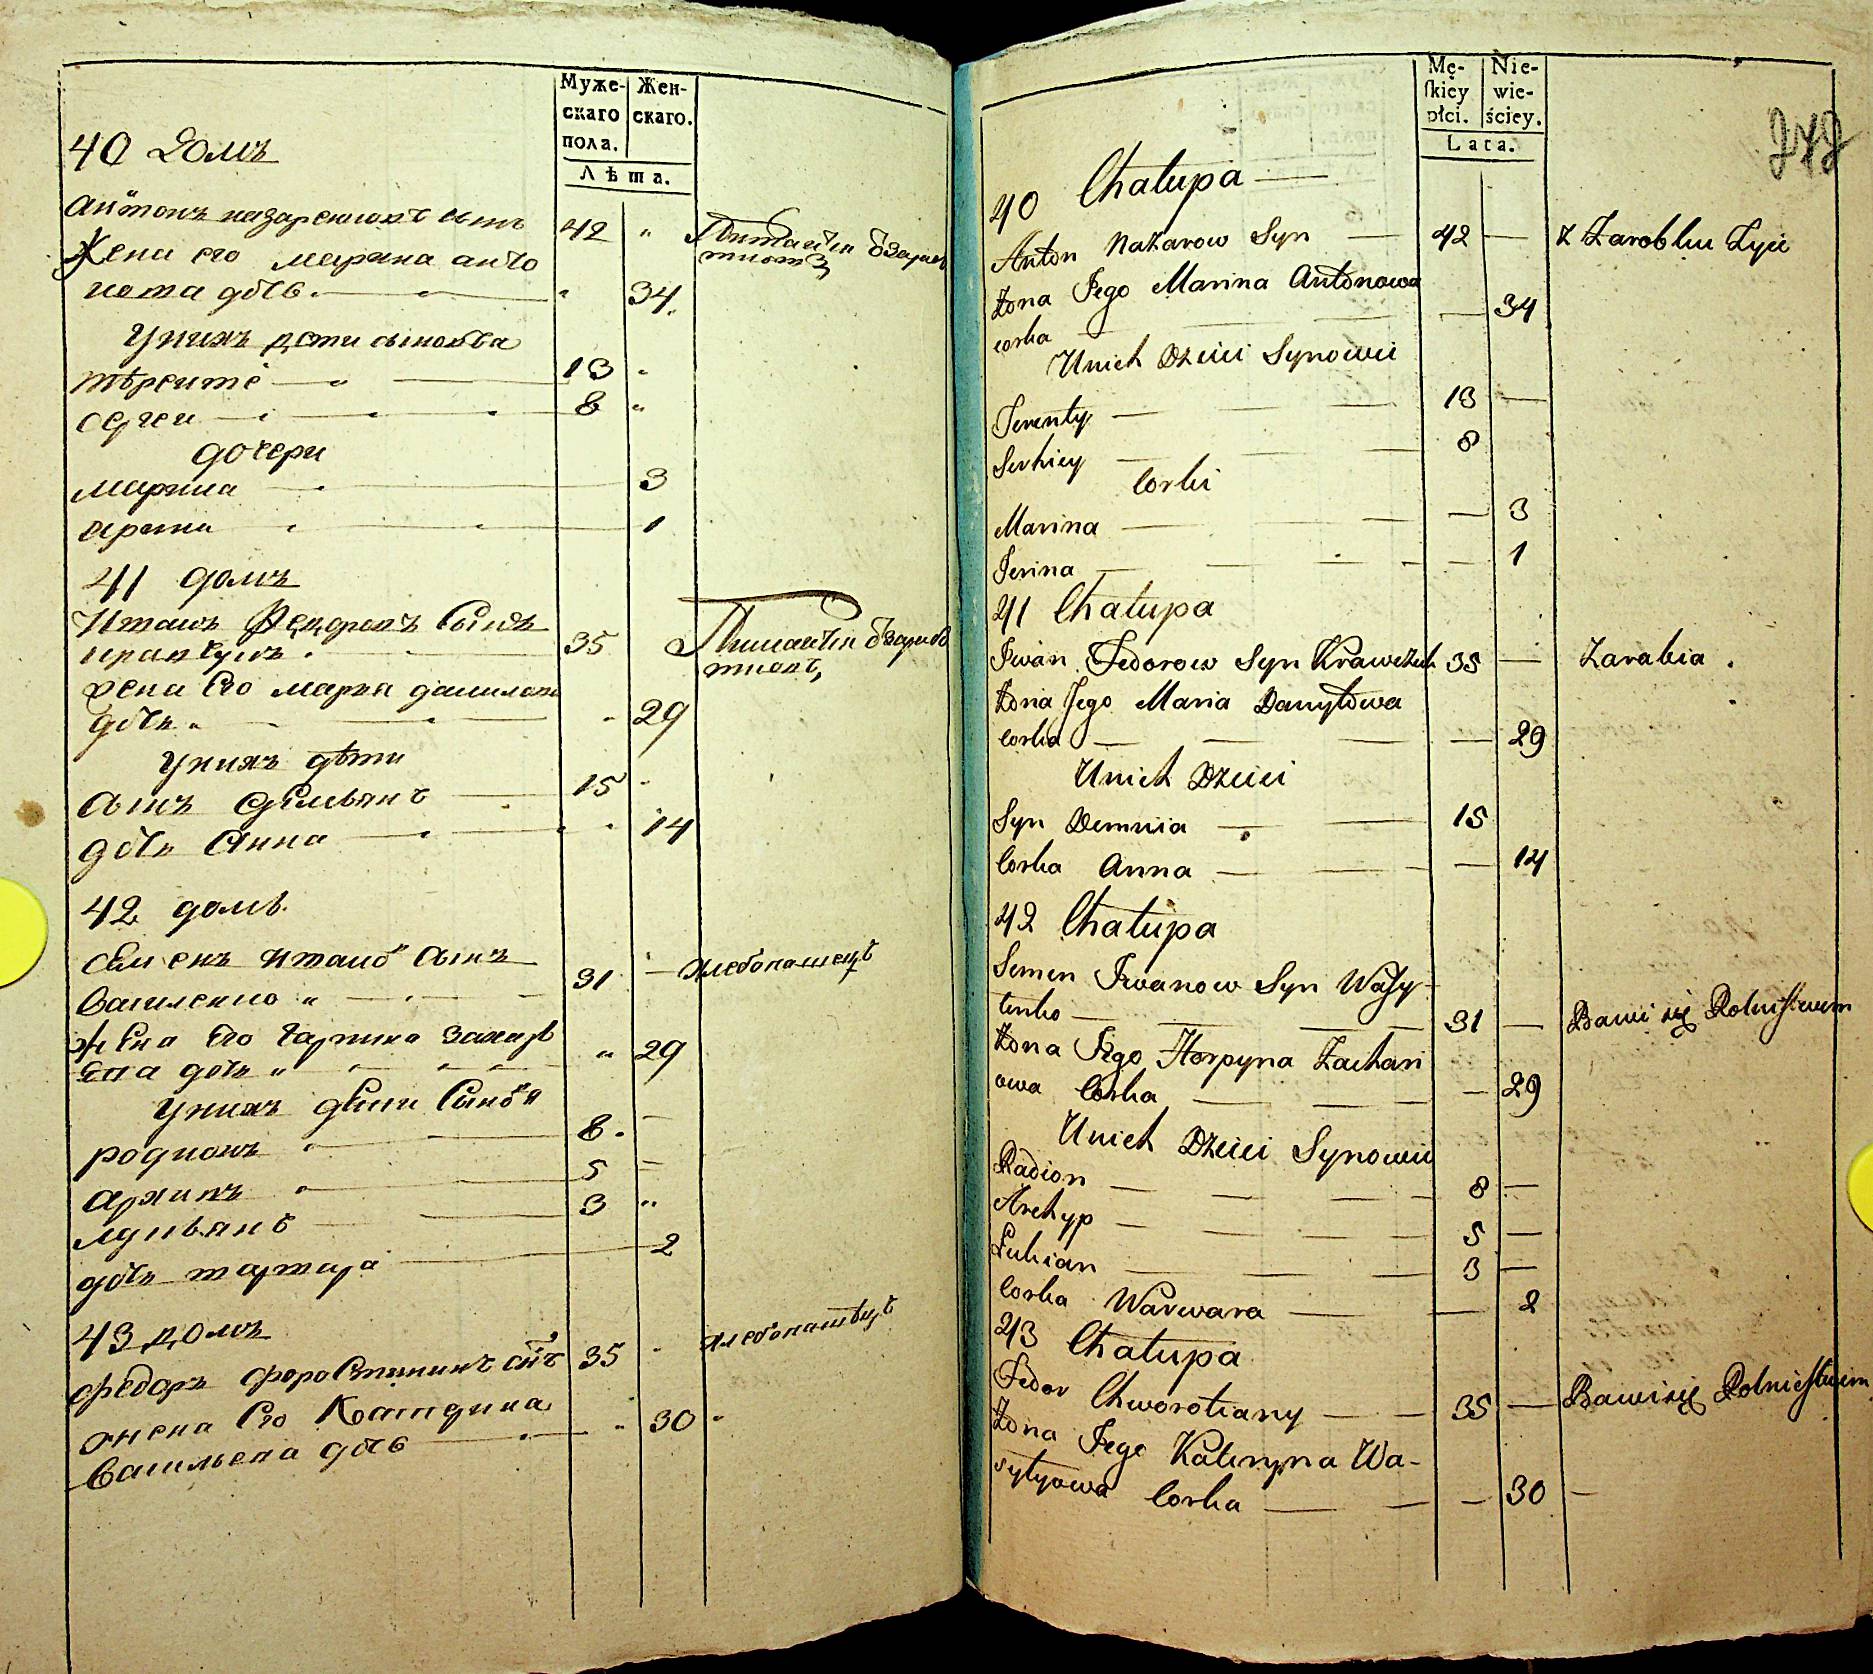 Муже-
скаго
пола.
Жен-
скаго.
Лѣта.
40 домъ
Антонъ назаренковъ сынъ 42 "
Жена его марина анто
нова дочь 34
У нихъ дети сыновья
тѣренте 13 "
сергеи 8 "
дочери
марина 3
ирина 1
41 домъ
Иванъ Федоровъ Сынъ
кравчукъ 35
жена Его мария данилова
дочь " 29
У нихъ дѣти
сынъ демьянъ 15 "
дочь Анна 14
42 домъ
Семенъ Ивановъ сынъ
Василенко " 31 — хлебопашецъ
жена Его Гарпина Захарь
ева дочь " " 29
У нихъ дети Сыновья
родионъ 8 —
архипъ 5 —
лукьянъ 3 "
дочь варвара 2
43 домъ
федоръ сынъ 35 хлебопашецъ
жена Его Катерина
Васильева дочь " 30
Mę-
ſkiey
płci.
Nie-
wie-
ściey.
Lata.
40 Chałupa —
Anton Nazarow Syn — 42 — z Zarobku Zyie
Żona Jego Marina Antonowa
corka — — 34
Unich Dzieci Synowie
Terenty — 13 —
Serhiey — 8
Corki
Marina — — 3
Jerina — — 1
41 Chałupa
Jwan Fedorow Syn Krawczuk 35 — Zarabia .
Żona Jego Maria Danyłowa
Corka — — 29
Unich Dzieci
Syn Demnia — 15
Corka Anna — — 14
42 Chałupa
Semen Jwanow Syn Wasy-
lenko — 31 — Bawi się Rolnictwem
Żona Jego Horpyna Zachari
owa Corka — — 29
Unich Dzieci Synowie
Radion — 8 —
Archyp — 5 —
Łukian — 3 —
Corka Warwara — — 2
43 Chałupa
Fedor Chworostiany — 35 — Bawi się Rolnictwem
Żona Jego Kateryna Wa-
sylyowa Corka — — 30 —